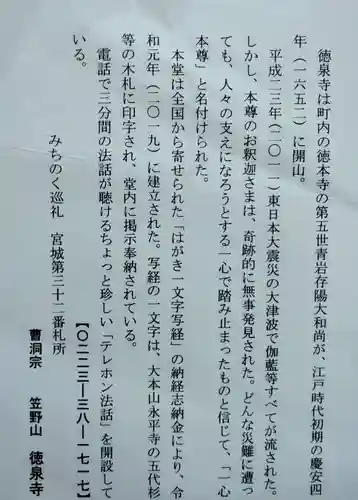 徳泉寺は町内の徳本寺の第五世青岩存陽大和尚が、江戸時代初期の慶安四
年（一六五二）に開山。
平成二三年（二〇一一）東日本大震災の大津波で伽藍等すべてが流された。
しかし、本尊のお釈迦さまは、奇跡的に無事発見された。どんな災難に遭っ
ても、人々の支えになろうとする一心で踏み止まったものと信じて、「一心
本尊」と名付けられた。
本堂は全国から寄せられた「はがき一文字写経」の納経志納金により、令
和元年（二〇一九）に建立された。写経の一文字は、大本山永平寺の五代杉
等の木札に印字され、堂内に掲示奉納されている。
電話で三分間の法話が聴けるちょっと珍しい「テレホン法話」を開設して
いる。
【〇二二三―三八―一七一七】
みちのく巡礼 宮城第三十二番札所
曹洞宗 笠野山 徳泉寺